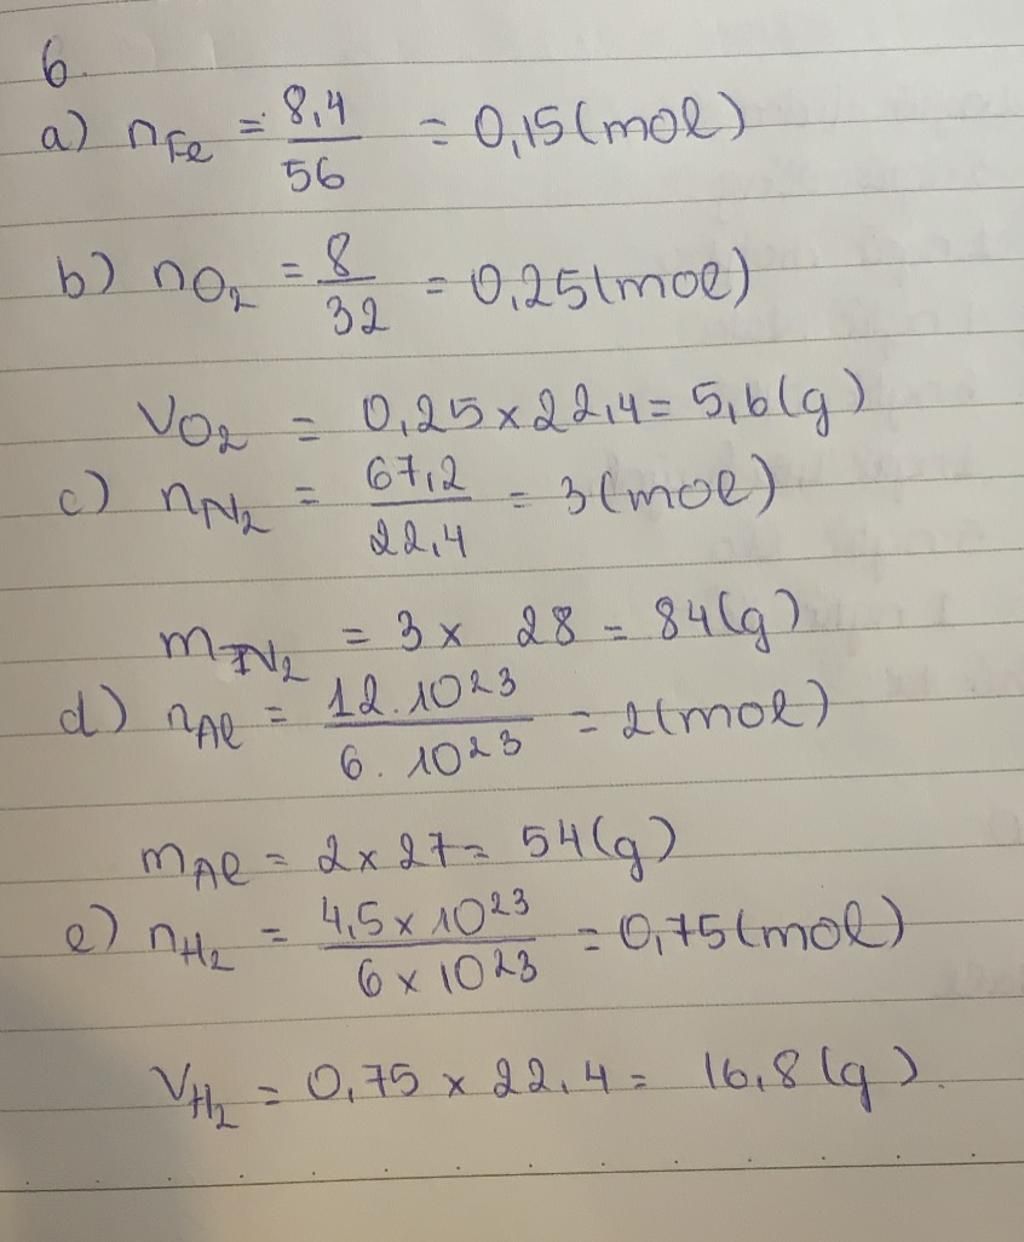 6.
a) nFe = 8,4/56 = 0,15(mol)
b) nO₂ = 8/32 = 0,25(mol)
VO₂ = 0,25 x 22,4 = 5,6(g)
c) nN₂ = 67,2/22,4 = 3(mol)
mN₂ = 3 x 28 = 84(g)
d) nAl = 12.10²³/6.10²³ = 2(mol)
mAl = 2 x 27 = 54(g)
e) nH₂ = 4,5 x 10²³/6 x 10²³ = 0,75(mol)
VH₂ = 0,75 x 22,4 = 16,8(g).